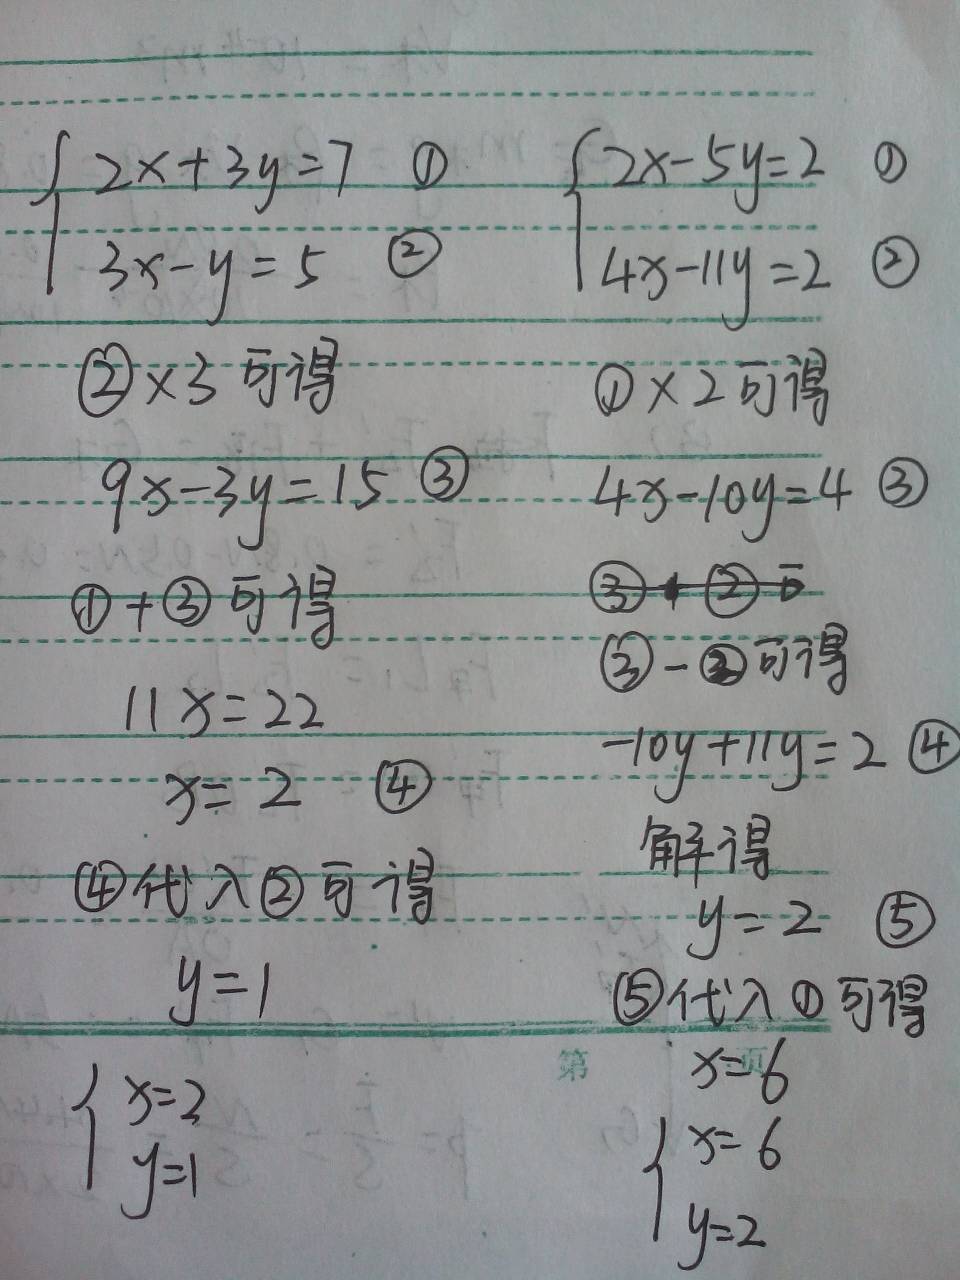 2x+3y=7 ①
3x-y=5 ②
②×3可得
9x-3y=15 ③
①+③可得
11x=22
x=2 ④
④代入②可得
y=1
x=2
y=1
2x-5y=2 ①
4x-11y=2 ②
①×2可得
4x-10y=4 ③
③-②可得
-10y+11y=2 ④
解得
y=2 ⑤
⑤代入①可得
第 页
x=6
x=6
y=2